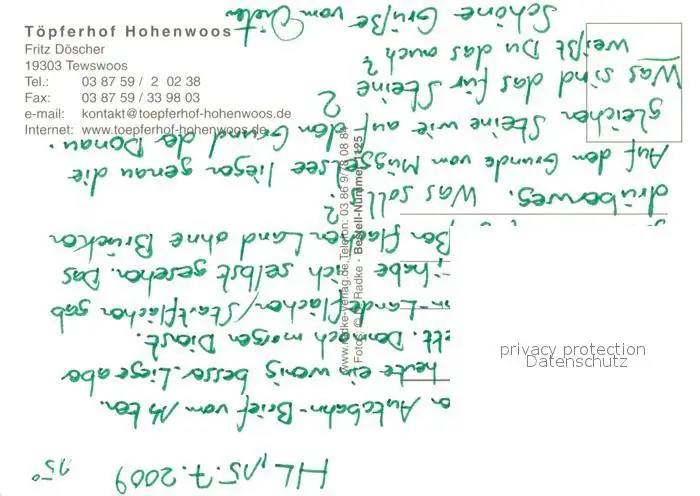 Töpferhof Hohenwoos
Fritz Döscher
19303 Tewswoos
Tel.: 03 87 59 / 2 02 38
Fax: 03 87 59 / 33 98 03
e-mail: kontakt@toepferhof-hohenwoos.de
Internet: www.toepferhof-hohenwoos.de
www.radke-verlag.de, Telefon: 03 86 9
Radke - Bestell-Nummer
HL, 15.7.2009 15°
Autobahn-Brief vom 14ten.
heute ein wenig besser. Liege aber
Dennoch morgen Dienst.
Landeflächen/Startflächen gab
habe ich selbst gesehen. Das
flachen Land ohne Brücken
drüberweg. Was soll ?
Auf dem Grunde vom Müggelsee liegen genau die
gleichen Steine wie auf dem Grund der Donau.
Was sind das für Steine ?
weißt Du das auch ?
Schöne Grüße vom Dieter
privacy protection
Datenschutz